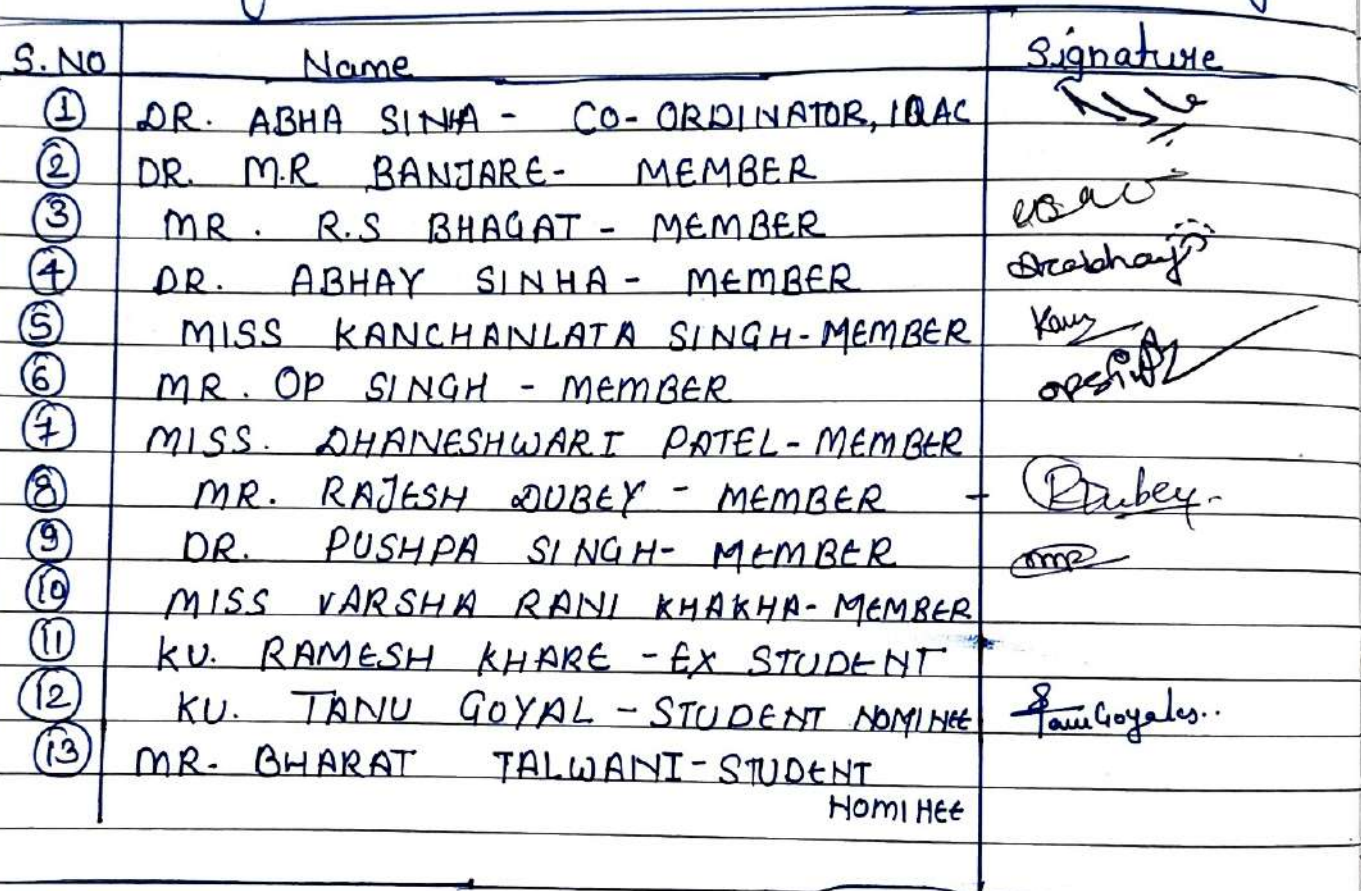 S.NO Name Signature
1 DR. ABHA SINHA - CO-ORDINATOR, IQAC
2 DR. M.R BANJARE- MEMBER
3 MR. R.S BHAGAT - MEMBER
4 DR. ABHAY SINHA - MEMBER Drabhay
5 MISS KANCHANLATA SINGH-MEMBER
6 MR. OP SINGH - MEMBER
7 MISS. DHANESHWARI PATEL-MEMBER
8 MR. RAJESH DUBEY - MEMBER - RDubey.
9 DR. PUSHPA SINGH- MEMBER
10 MISS VARSHA RANI KHAKHA-MEMBER
11 KU. RAMESH KHARE - EX STUDENT
12 KU. TANU GOYAL - STUDENT NOMINEE
13 MR. BHARAT TALWANI-STUDENT
NOMINEE